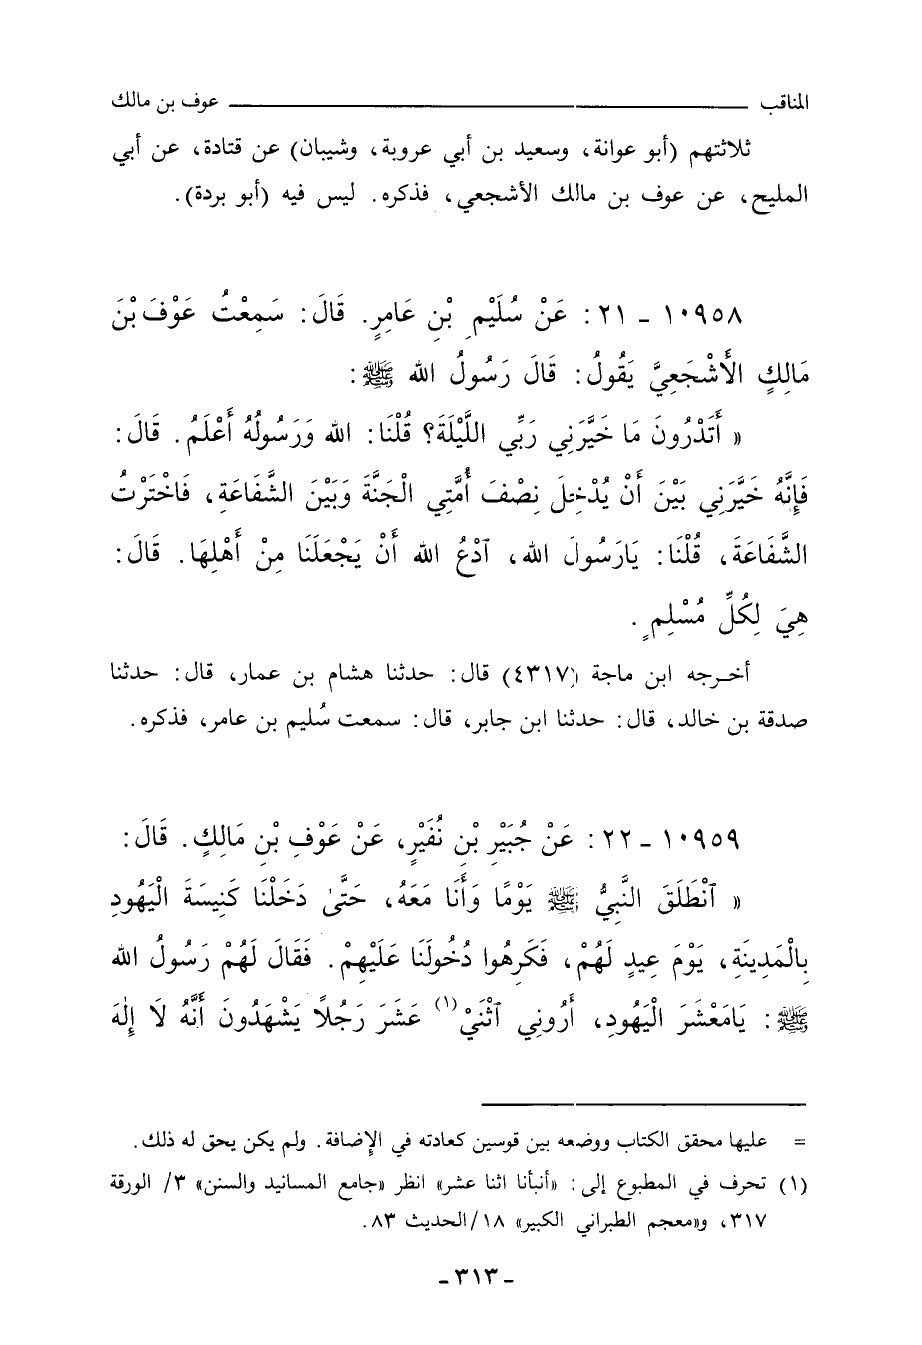 المناقب ـــــــــــــــــــــــــــــــــــــــــــــــــــــــــــــ عوف بن مالك
ثلاثتهم (أبو عوانة، وسعيد بن أبي عروبة، وشيبان) عن قتادة، عن أبي
المليح، عن عوف بن مالك الأشجعي، فذكره. ليس فيه (أبو بردة).
١٠٩٥٨ - ٢١: عَنْ سُلَيْمِ بْنِ عَامِرٍ. قَالَ: سَمِعْتُ عَوْفَ بْنَ
مَالِكٍ الأَشْجَعِيَّ يَقُولُ: قَالَ رَسُولُ الله ﷺ:
« أَتَدْرُونَ مَا خَيَّرَنِي رَبِّي اللَّيْلَةَ؟ قُلْنَا: الله وَرَسُولُهُ أَعْلَمُ. قَالَ:
فَإِنَّهُ خَيَّرَنِي بَيْنَ أَنْ يُدْخِلَ نِصْفَ أُمَّتِي الْجَنَّةَ وَبَيْنَ الشَّفَاعَةِ، فَاخْتَرْتُ
الشَّفَاعَةَ، قُلْنَا: يَارَسُولَ الله، ٱدْعُ الله أَنْ يَجْعَلَنَا مِنْ أَهْلِهَا. قَالَ:
هِيَ لِكُلِّ مُسْلِمٍ.
أخـرجه ابن ماجة (٤٣١٧) قال: حدثنا هشام بن عمار، قال: حدثنا
صدقة بن خالد، قال: حدثنا ابن جابر، قال: سمعت سُليم بن عامر، فذكره.
١٠٩٥٩ - ٢٢: عَنْ جُبَيْرِ بْنِ نُفَيْرٍ، عَنْ عَوْفِ بْنِ مَالِكٍ. قَالَ:
« ٱنْطَلَقَ النَّبِيُّ ﷺ يَوْمًا وَأَنَا مَعَهُ، حَتَّى دَخَلْنَا كَنِيسَةَ الْيَهُودِ
بِالْمَدِينَةِ، يَوْمَ عِيدٍ لَهُمْ، فَكَرِهُوا دُخُولَنَا عَلَيْهِمْ. فَقَالَ لَهُمْ رَسُولُ الله
ﷺ: يَامَعْشَرَ الْيَهُودِ، أَرُونِي ٱثْنَيْ(١) عَشَرَ رَجُلاً يَشْهَدُونَ أَنَّهُ لَا إِلٰهَ
= عليها محقق الكتاب ووضعه بين قوسين كعادته في الإضافة. ولم يكن يحق له ذلك.
(١) تحرف في المطبوع إلى: «أنبأنا اثنا عشر» انظر «جامع المسانيد والسنن» ٣/ الورقة
٣١٧، و«معجم الطبراني الكبير» ١٨/الحديث ٨٣.
- ٣١٣ -